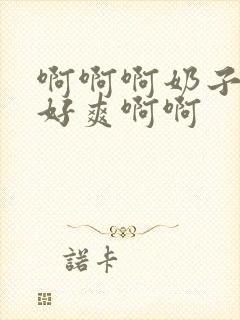 啊啊啊奶子
好爽啊啊
諾卡